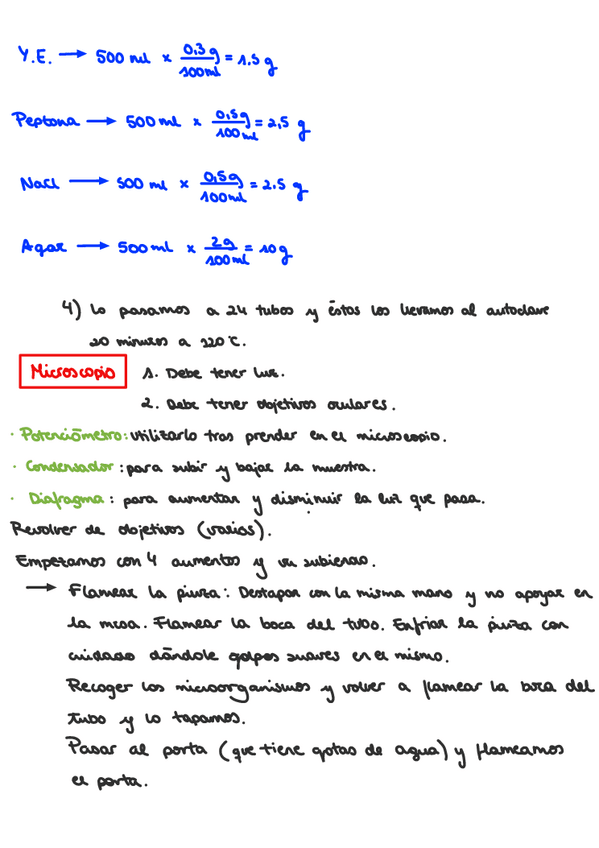 Y.E. → 500 ml x 0,3 g / 100 ml = 1.5 g
Peptona → 500 ml x 0,5 g / 100 ml = 2,5 g
NaCl → 500 ml x 0,5 g / 100 ml = 2.5 g
Agar → 500 ml x 2 g / 100 ml = 10 g
4) Lo pasamos a 24 tubos y éstos los llevamos al autoclave
20 minutos a 120°C.
Microscopio 1. Debe tener luz.
2. Debe tener objetivos oculares.
· Potenciómetro: utilizarlo tras prender en el microscopio.
· Condensador: para subir y bajar la muestra.
· Diafragma: para aumentar y disminuir la luz que pasa.
Revolver de objetivos (varios).
Empezamos con 4 aumentos y va subiendo.
→ Flamear la pinza: Destapar con la misma mano y no apoyar en
la mesa. Flamear la boca del tubo. Enfriar la pinza con
cuidado dándole golpes suaves en el mismo.
Recoger los microorganismos y volver a flamear la boca del
tubo y lo tapamos.
Pasar al porta (que tiene gotas de agua) y flameamos
el porta.